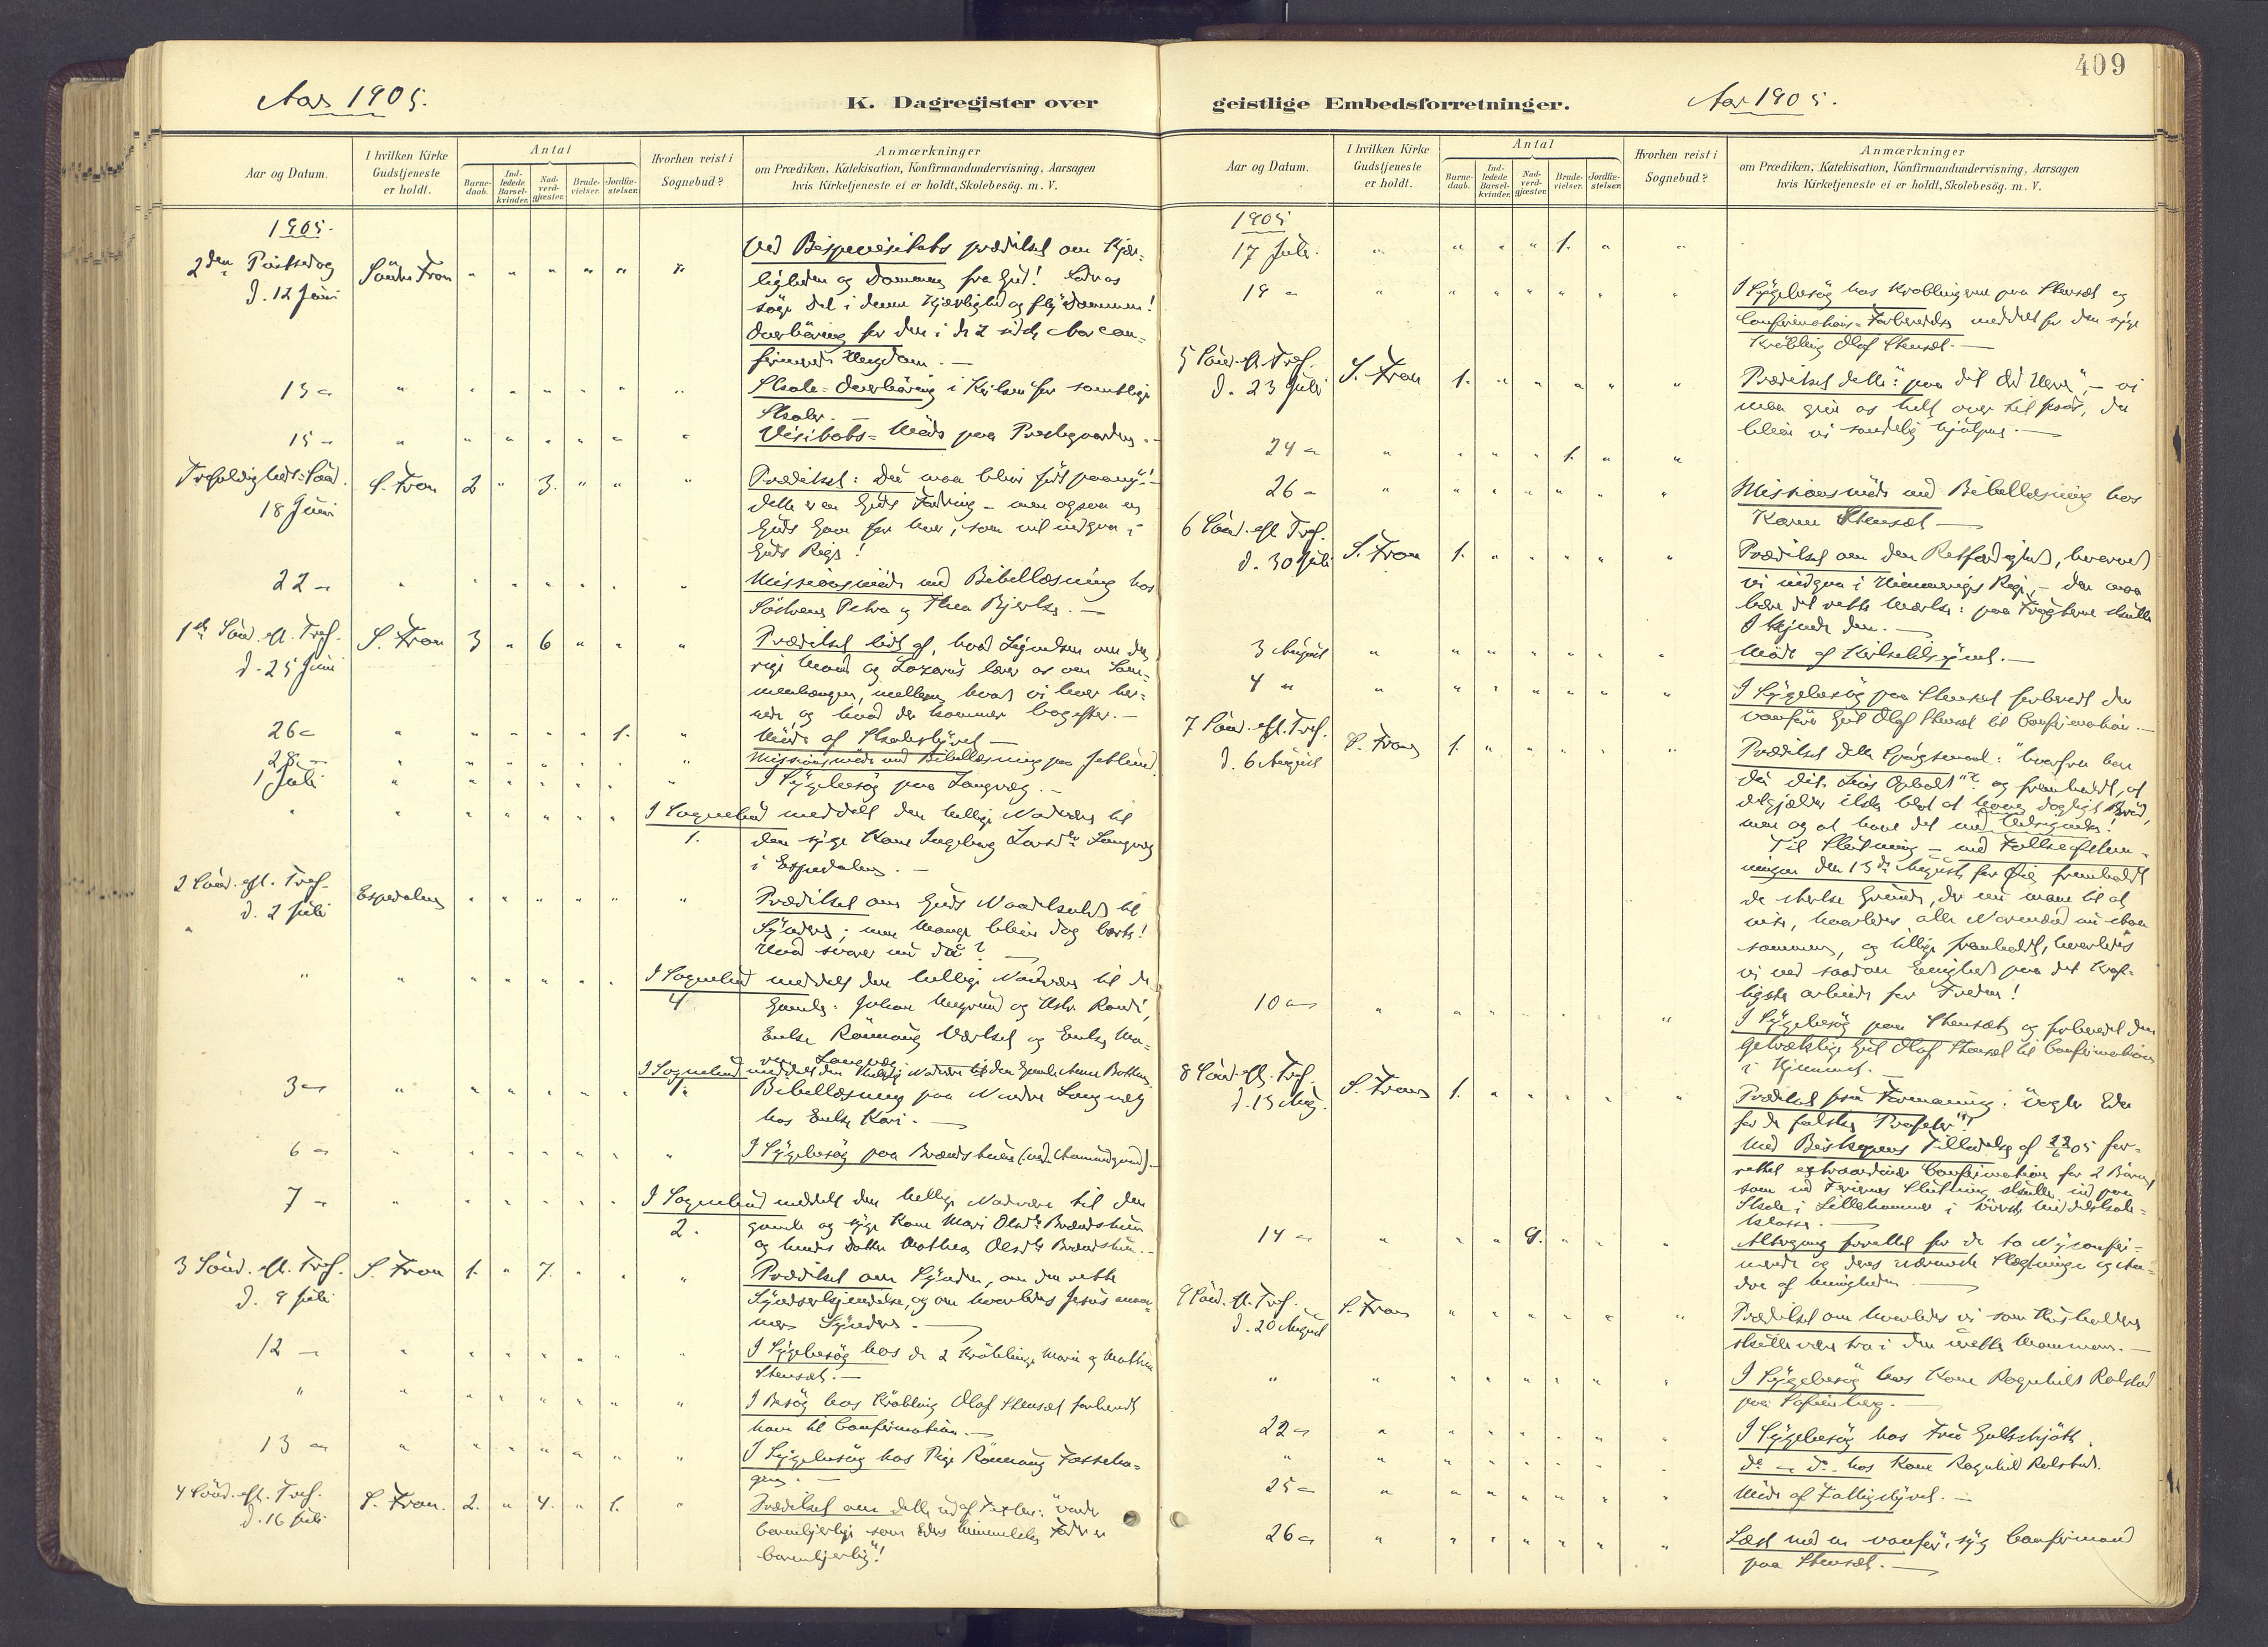 409
Aar 1905.
K. Dagregister over
geistlige Embedsforretninger.
Aar 1905.
Aar og Datum.
I hvilken Kirke Gudstjeneste er holdt.
Antal
Barne-daab.
Ind-ledede Barsel-kvinder.
Nad-verd-gjæster.
Brude-vielser.
Jordfæ-stelser.
Hvorhen reist i Sognebud?
Anmærkninger
om Prædiken, Katekisation, Konfirmandundervisning, Aarsagen
hvis Kirketjeneste ei er holdt, Skolebesög. m. V.
1905.
2den Pintsedag
d. 12 Juni
Söndre Fron
Ved Bispevisitats prædiket om Kjær-
ligheden og Dommen fra Gud! Lad os
söge det i denne Kjærlighed og fly Dommen!
Overhöring for den i de 2 sidste Aar con-
firmerede Ungdom. —
13 "
Skole-Overhöring i Kirken for samtlige
Skoler. —
15 "
Visitats-Möde paa Prestegaarden. —
Trefoldigheds-Sönd.
18 Juni
S. Fron 2 " 3. " "
Prædiket: Du maa blive født paany! —
dette er en Guds Fordring — men ogsaa en
Guds Gave for hver, som vil indgaa i
Guds Rige!
22 "
Missionsmöde med Bibellæsning hos
Söstrene Petra og Thea Bjerke. —
1ste Sönd. eft. Tref.
d. 25 Juni
S. Fron 3 " 6 " "
Prædiket lidt af, hvad Lignelsen om den
rige Mand og Lazarus lærer os om Sam-
menhængen mellem hvad vi lever her-
nede, og hvad der kommer bagefter. —
26 "
1.
Möde af Skolestyret —
28 "
Missionsmöde med Bibellæsning paa
1 Juli
I Sygebesög paa Langvæg. —
I Sognebud meddelt den hellige Nadvere til
1. den syge Kone Ingeborg Larsdtr Langvæg
i Espedalen. —
2 Sönd. eft. Tref.
d. 2 Juli
Espedalen
Prædiket om Guds Naadesbud til
Syndere; men Mange bleve dog borte!
Hvad svarer nu du? —
I Sognebud meddelt den hellige Nadvere til de
4 Gamle: Johan og Hstr. Randi,
Enke Rönnaug og Enke Ma-
ren Langvæg
3 "
I Sognebud meddelt den hellige Nadvere til den gamle Anne
1. Bibellæsning paa Nordre Langvæg
hos Enke Kari. —
6 "
I Sygebesög paa Brændstuen —
7 "
I Sognebud meddelt den hellige Nadvere til den
2. gamle og syge Kone Mari Olsdtr Brændstuen
og hendes Datter Mathea Olsdtr Brændstuen. —
3 Sönd. eft. Tref.
d. 9 Juli
S. Fron 1. " 7. "
Prædiket om Synden, om den rette
Syndserkjendelse, og om hvorledes Jesus annam-
mer Syndere. —
12 "
I Sygebesög hos de 2 Kröblinge Marie og Mathea
Stensæt. —
I Besög hos Kröbling Olaf Stensæt forberedt
ham til Confirmation. —
13 "
I Sygebesög hos Pige Rönnaug
4 Sönd. eft. Tref.
d. 16 Juli
S. Fron. 2. " 4. " 1.
Prædiket om dette ud af Texten: "vorder
barmhjertige som Eders himmelske Fader er
barmhjertig"!
Aar og Datum.
I hvilken Kirke Gudstjeneste er holdt.
Antal
Barne-daab.
Ind-ledede Barsel-kvinder.
Nad-verd-gjæster.
Brude-vielser.
Jordfæ-stelser.
Hvorhen reist i Sognebud?
Anmærkninger
om Prædiken, Katekisation, Konfirmandundervisning, Aarsagen
hvis Kirketjeneste ei er holdt, Skolebesög. m. V.
1905
17 Juli. 1.
19 "
I Sygebesög hos Kröblingerne paa Stensæt og
Confirmations-Forberedelse meddelt for den syge
Kröbling Olaf Stensæt. —
5 Sönd. eft. Tref.
d. 23 Juli
S. Fron 1.
Prædiket dette: "paa dit Ord Herre", — vi
maa give os helt over til det, da
blive vi sandelig hjulpne. —
24 " 1.
26 "
Missionsmöde med Bibellæsning hos
Karen Stensæt —
6 Sönd. eft. Tref.
d. 30 Juli
S. Fron 1.
Prædiket om den Retfærdighed, hvorved
vi indgaa i Himmeriges Rige, — den maa
bære det rette Mærke: paa Frugterne skulle
I kjende den. —
3 August
Möde af Kirketilsynet. —
4 "
I Sygebesög paa Stensæt forberedt den
vanföre Gut Olaf Stensæt til Confirmation. —
7 Sönd. eft. Tref.
d. 6 August
S. Fron 1.
Prædiket dette Spörgsmaal: "hvorfra har
du dit Livs Ophold"? og fremholdt, at
det gjælder ikke blot at have dagligt Bröd,
men og at have det med Velsignelse!
Til Slutning — med Folkeafstem-
ningen den 13de August for Øie fremholdt
de sterke Grunde, der nu mane til at
vise, hvorledes alle Nordmænd nu staa
sammen, og tillige fremholdt, hvorledes
vi ved saadan Enighed paa det kraf-
tigste arbeide for Freden!
10 "
I Sygebesög paa Stensæt og forberedt den
Gut Olaf Stensæt til Confirmation
i Hjemmet. —
8 Sönd. eft. Tref.
d. 13 Aug.
S. Fron 1.
Prædiket paa Formaning: "vogter Eder
for de falske Profeter"!
Med Biskopens Tilladelse af 22/6 05 for-
rettet extraordinær Confirmation for 2 Börn,
som ved Feriernes Slutning skulle ind paa
Skole i Lillehammer i Middelskole-
klasse. —
14 " 9.
Altergang forrettet for de to Nyconfir-
merede og deres nærmeste Slægtninge og An-
dre af Menigheden. —
9 Sönd. eft. Tref.
d. 20 August
S. Fron
Prædiket om hvorledes vi som Husholdere
skulle være tro i den urette Mammon. —
I Sygebesög hos Kone Ragnhild Rolstad
paa Sofienberg. —
22 "
I Sygebesög hos Fru
do — do hos Kone Ragnhild Rolstad.
25 "
Möde af Fattigstyret. —
26 "
Læst med en vanför, syg Confirmand
paa Stensæt. —